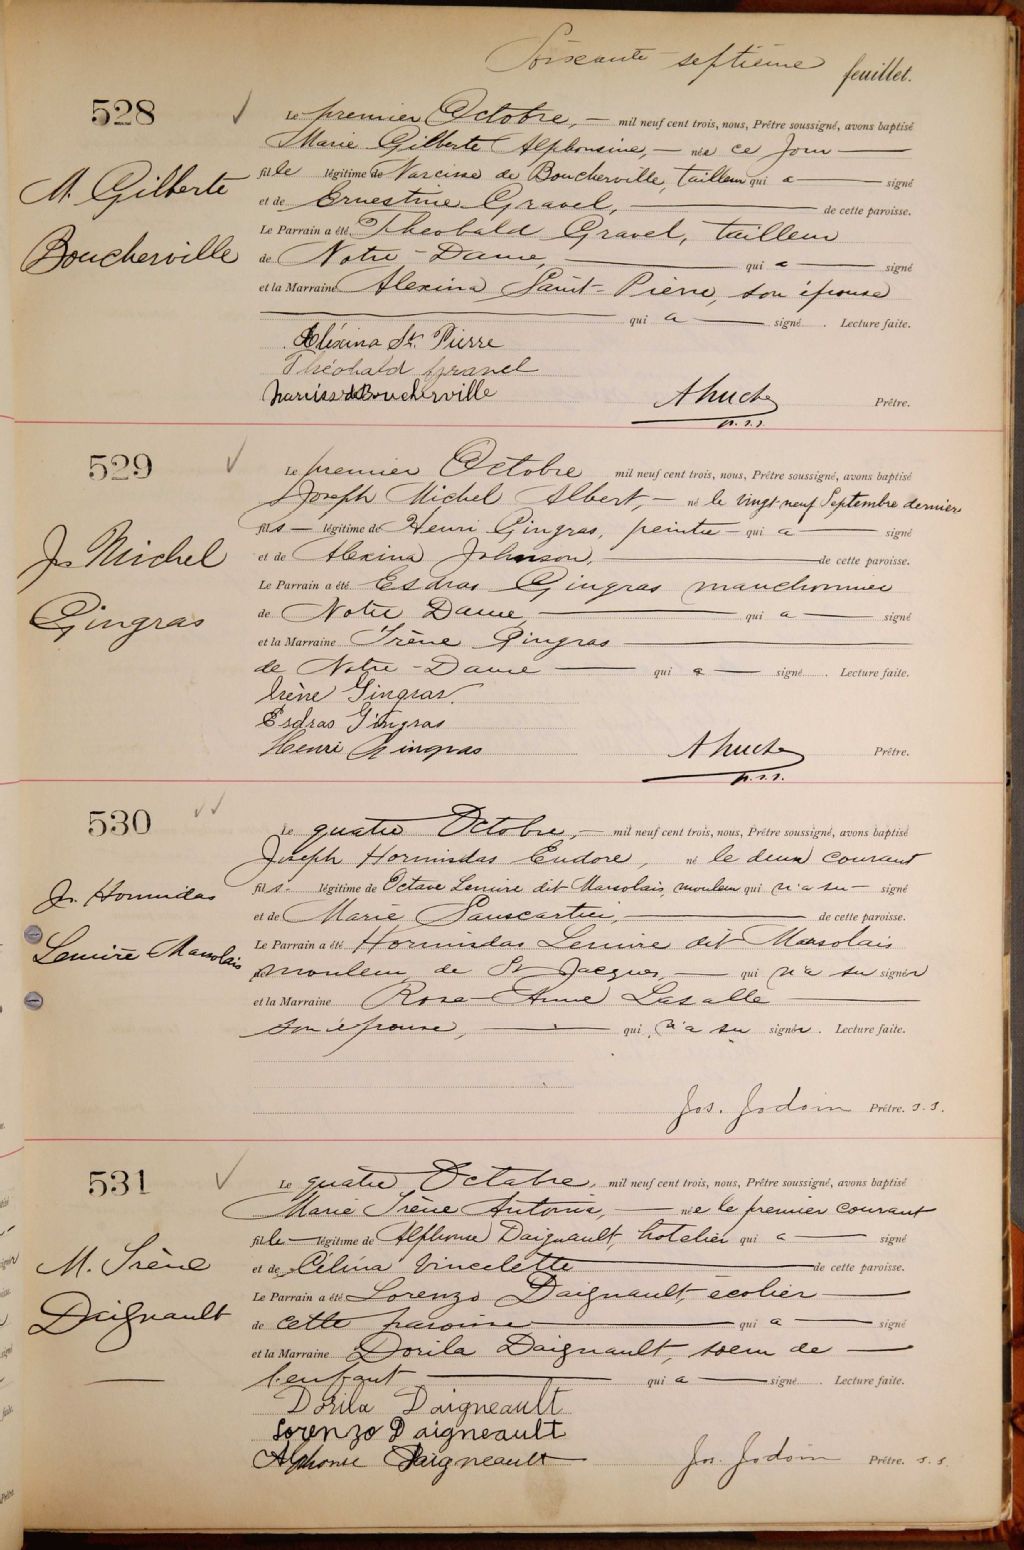 Soixante-septième feuillet.
528
M. Gilberte
Boucherville
Le premier Octobre, — mil neuf cent trois, nous, Prêtre soussigné, avons baptisé
Marie Gilberte Alphonsine, — née ce jour —
fille légitime de Narcisse de Boucherville, tailleur qui a — signé
et de Ernestine Gravel, — de cette paroisse.
Le Parrain a été Theobald Gravel, tailleur
de Notre-Dame, — qui a — signé
et la Marraine Alexina Saint-Pierre, son épouse
— qui a — signé. Lecture faite.
Aléxina St. Pierre
Théobald Gravel
Narcisse de Boucherville
Prêtre.
p.s.s.
529
Js Michel
Gingras
Le premier Octobre mil neuf cent trois, nous, Prêtre soussigné, avons baptisé
Joseph Michel Albert, — né le vingt neuf Septembre dernier
fils — légitime de Henri Gingras, peintre — qui a — signé
et de Alexina Johnson, — de cette paroisse.
Le Parrain a été Esdras Gingras manchonnier
de Notre Dame, — qui a — signé
et la Marraine Irène Gingras —
de Notre-Dame — qui a — signé. Lecture faite.
Irène Gingras.
Esdras Gingras
Henri Gingras
Prêtre.
p.s.s.
530
Js. Hormidas
Lemire Marsolais
Le quatre Octobre, — mil neuf cent trois, nous, Prêtre soussigné, avons baptisé
Joseph Hormisdas Eudore, né le deux courant
fils - légitime de Octave Lemire dit Marsolais, mouleur qui n'a su — signé
et de Marie — de cette paroisse.
Le Parrain a été Hormisdas Lemire dit Marsolais
mouleur, de St Jacques, — qui n'a su signer
et la Marraine Rose-Anne Lasalle —
son épouse, — qui n'a su signer. Lecture faite.
Jos. Jodoin Prêtre. s.s.
531
M. Irène
Daignault
—
Le quatre Octobre, mil neuf cent trois, nous, Prêtre soussigné, avons baptisé
Marie Irène Antonia, — née le premier courant
fille — légitime de Alphonse Daignault, hotelier qui a — signé
et de Célina Vincelette — de cette paroisse.
Le Parrain a été Lorenzo Daignault, écolier —
de cette paroisse — qui a — signé
et la Marraine Dorila Daignault, soeur de —
l'enfant — qui a — signé. Lecture faite.
Dorila Daigneault
Lorenzo Daigneault
Alphonse Daigneault
Jos. Jodoin Prêtre. s.s.